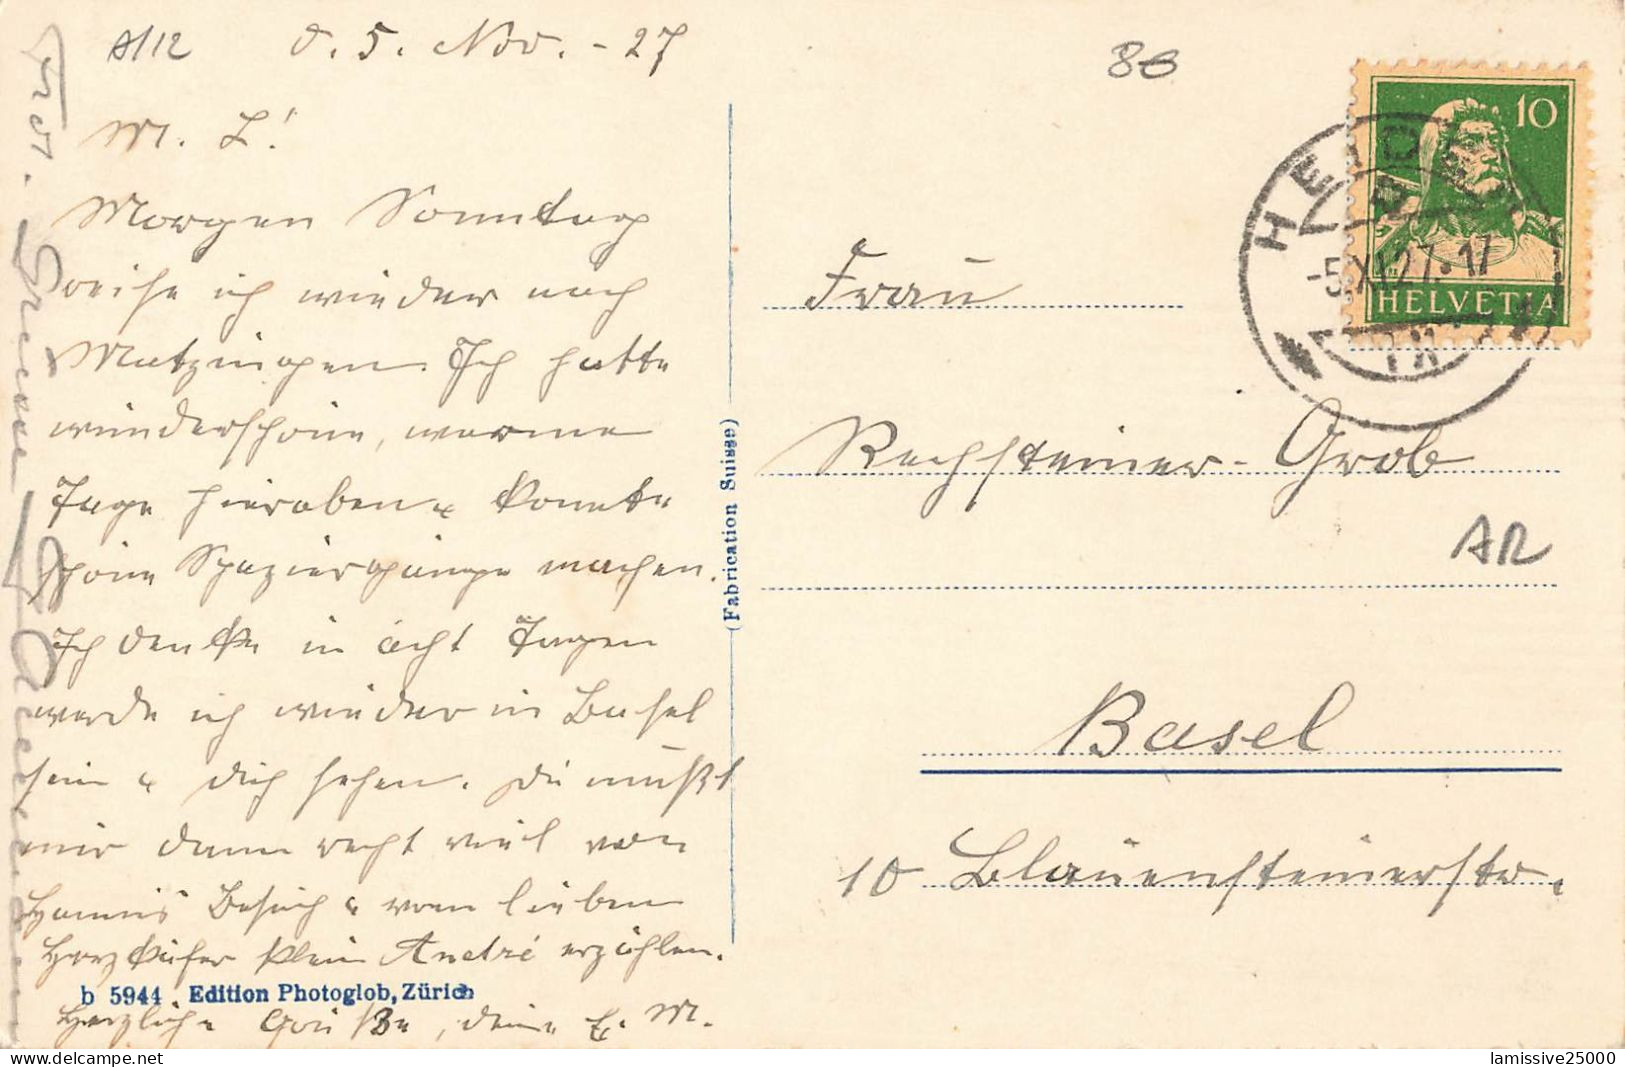 A/12 d. 5. Nov. - 27
M. L!
Morgen Sonntag
reise ich wieder nach
Matzingen. Ich hatte
wunderschöne, warme
Tage hieroben & konnte
schöne Spaziergänge machen.
Ich denke in acht Tagen
werde ich wieder in Basel
sein & dich sehen. Du mußt
mir dann recht viel von
Hannis Besuch & vom lieben
Herzkäfer klein André erzählen.
Herzliche Grüße, deine E. M.
b 5944 Edition Photoglob, Zürich
(Fabrication Suisse)
10
HELVETIA
HEIDEN
-5.XI.27.17
Frau
Rechsteiner-Grob
AR
Basel
10 Blauensteinerstr.
lamissive25000